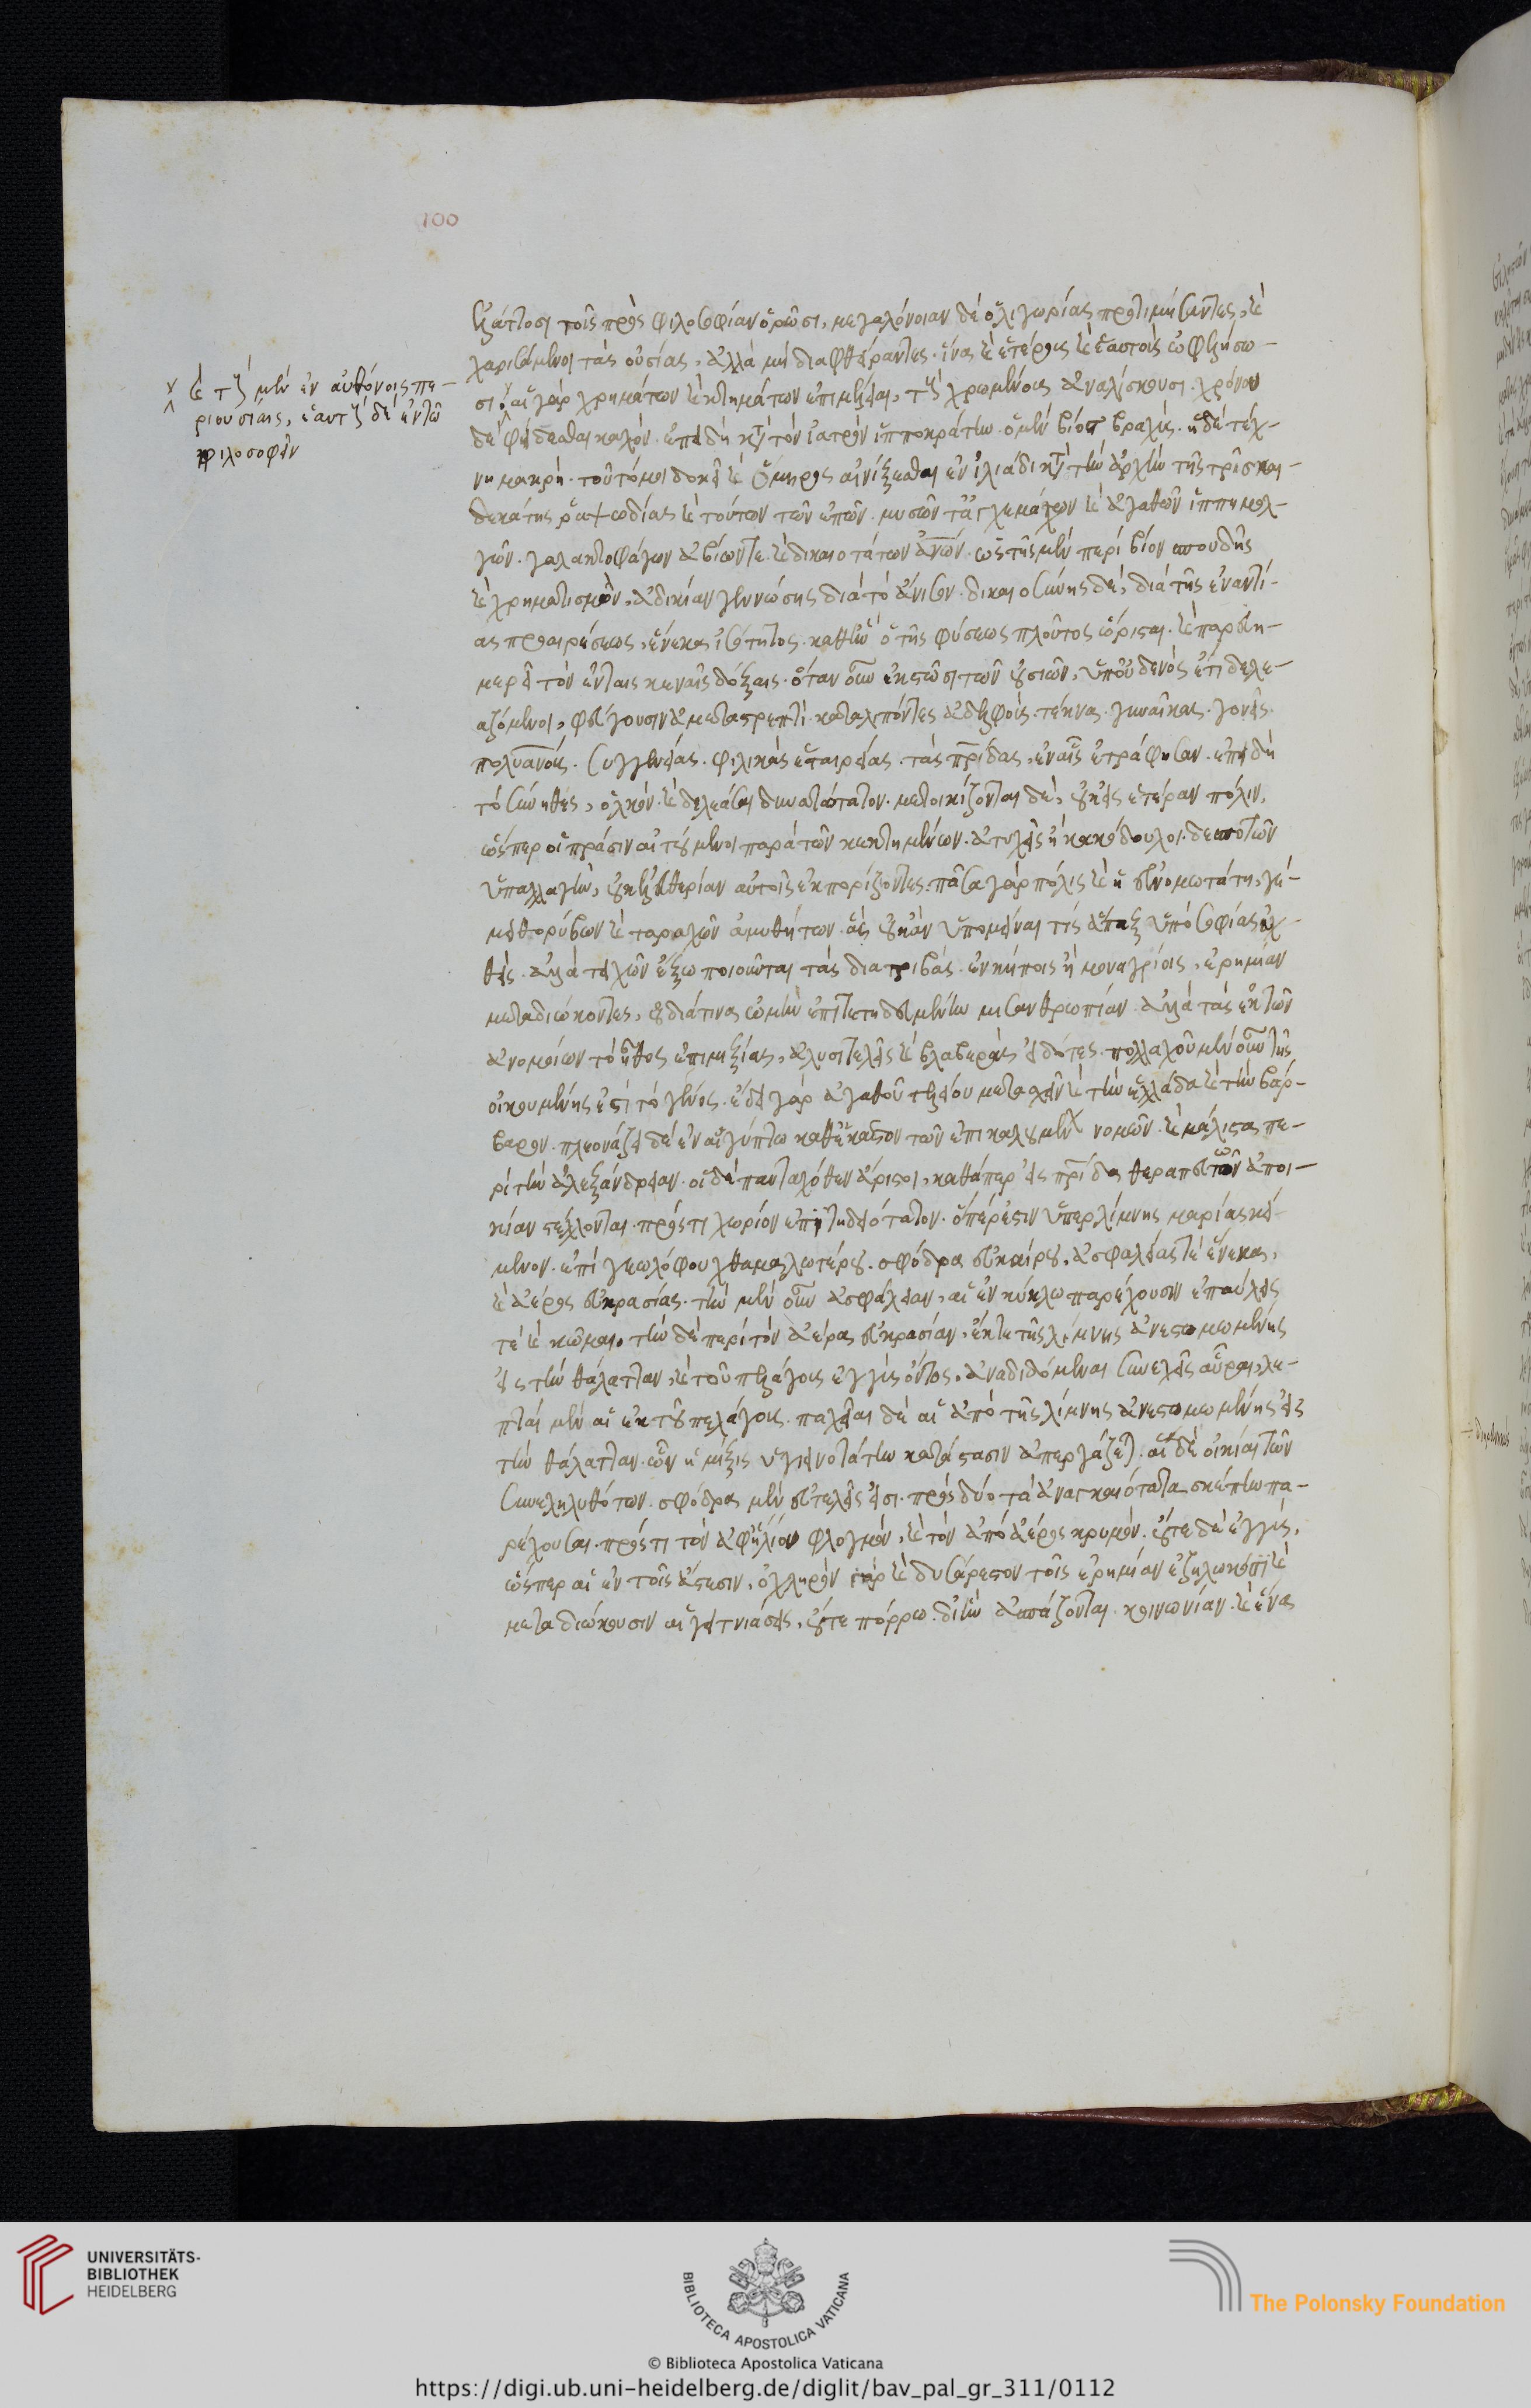 100
ἐλάττοσι τοῖς πρὸς φιλοσοφίαν ὁρῶσι, μεγαλόνοιαν δὲ ὀλιγωρίας προτιμήσαντες, καὶ
χαρισάμενοι τὰς οὐσίας, ἀλλὰ μὴ διαφθείραντες. ἵνα καὶ ἑτέρους καὶ ἑαυτοὺς ὠφελήσω-
σι. αἱ γὰρ χρημάτων καὶ κτημάτων ἐπιμέλειαι, τοὺς χρωμένους ἀναλίσκουσι. χρόνου
δὲ φείδεσθαι καλόν. ἐπειδὴ κατὰ τὸν ἰατρὸν ἱπποκράτην. ὁ μὲν βίος βραχύς. ἡ δὲ τέχ-
νη μακρή. τοῦτό μοι δοκεῖ καὶ ὅμηρος αἰνίξασθαι ἐν ἰλιάδι κατὰ τὴν ἀρχὴν τῆς τρισκαι-
δεκάτης ῥαψωδίας καὶ τούτων τῶν ἐπῶν. μυσῶν τ' ἀγχεμάχων καὶ ἀγαθῶν ἱππημολ-
γῶν. γαλακτοφάγων ἀβίωντε. καὶ δικαιοτάτων ἀνων. ὡς τῆς μὲν περὶ βίον σπουδῆς
καὶ χρηματισμὸν, ἀδικίαν γεννώσης διὰ τὸ ἄνισον. δικαιοσύνης δὲ, διὰ τῆς ἐναντί-
ας προαιρέσεως, ἕνεκα ἰσότητος. καθ' ἣν ὁ τῆς φύσεως πλοῦτος ὥρισται. καὶ παρευη-
μερεῖ τὸν ἐν ταις κεναῖς δόξαις. ὅταν οὖν ἐκστῶσι τῶν οὐσιῶν, ὑπ' οὐδενὸς ἔτι δελε-
αζόμενοι, φεύγουσιν ἀμεταστρεπτὶ. καταλιπόντες ἀδελφούς. τέκνα. γυναῖκας. γονεῖς.
πολυανους. συγγενείας. φιλικὰς ἑταιρείας. τὰς πρίδας, ἐν αἷς ἐτράφησαν. ἐπειδὴ
τὸ σύνηθες, ὁλκὸν. καὶ δελεάσαι δυνατώτατον. μετοικίζονται δὲ, οὐκ εἰς ἑτέραν πόλιν,
ὥσπερ οἱ πρᾶσιν αἰτούμενοι παρὰ τῶν κεκτημένων. ἀτυχεῖς ἢ κακόδουλοι. δεσποτῶν
ὑπαλλαγὴν, οὐκ ἐλευθερίαν αὐτοῖς ἐκπορίζοντες. πᾶσα γὰρ πόλις καὶ ἡ εὐνομωτάτη, γέ-
μει θορύβων καὶ ταραχῶν ἀμυθήτων. ἃς οὐκ ἂν ὑπομείναι τίς ἅπαξ ὑπὸ σοφίας ἀχ-
θείς. ἀλλὰ τειχῶν ἔξω ποιοῦνται τὰς διατριβάς. ἐν κήποις ἢ μοναγρίοις, ἐρημίαν
μεταδιώκοντες, οὐ διά τινα ὠμὴν ἐπιτετηδευμένην μισανθρωπίαν. ἀλλὰ τὰς ἐκ τῶν
ἀνομοίων τὸ ἦθος ἐπιμιξίας, ἀλυσιτελεῖς καὶ βλαβερὰς εἰδότες. πολλαχοῦ μὲν οὖν τῆς
οἰκουμένης ἐστὶ τὸ γένος. ἔδει γὰρ ἀγαθοῦ τελείου μετασχεῖν καὶ τὴν ἑλλάδα καὶ τὴν βάρ-
βαρον. πλεονάζει δὲ ἐν αἰγύπτω καθ' ἕκαστον τῶν ἐπικαλουμένων νομῶν. καὶ μάλιστα πε-
ρὶ τὴν ἀλεξάνδρειαν. οἱ δὲ πανταχόθεν ἄριστοι, καθάπερ εἰς πρίδα θεραπευτῶν ἀποι-
κίαν στέλλονται. πρός τι χωρίον ἐπιτηδειότατον. ὅπέρ ἐστιν ὑπερ λίμνης μαρίας κεί-
μενον. ἐπὶ γεωλόφου χθαμαλωτέρου. σφόδρα εὐκαίρως, ἀσφαλείας τὲ ἕνεκα,
καὶ ἀέρος εὐκρασίας. τὴν μὲν οὖν ἀσφάλειαν, αἱ ἐν κύκλω παρέχουσιν ἐπαύλεις
τὲ καὶ κῶμαι, τὴν δὲ περὶ τὸν ἀέρα εὐκρασίαν, ἐκ τε τῆς λίμνης ἀνεστομωμένης
εἰς τὴν θάλατταν, καὶ τοῦ πελάγους ἐγγὺς ὄντος, ἀναδιδόμεναι συνεχεῖς αὖραι, λε-
πταὶ μὲν αἱ ἐκ τοῦ πελάγους. παχεῖαι δὲ αἱ ἀπὸ τῆς λίμνης ἀνεστομωμένης εἰς
τὴν θάλατταν. ὧν ἡ μίξις ὑγιεινοτάτην κατάστασιν ἀπεργάζεται. αἱ δὲ οἰκίαι τῶν
συνεληλυθότων. σφόδρα μὲν εὐτελεῖς εἰσι. πρὸς δύο τὰ ἀναγκαιότατα σκέπην πα-
ρέχουσαι. πρός τι τὸν ἀφ' ἡλίου φλογμόν, καὶ τὸν ἀπὸ ἀέρος κρυμόν. οὔτε δὲ ἐγγύς,
ὥσπερ αἱ ἐν τοῖς ἄστεσιν, ὀχληρὸν γὰρ καὶ δυσάρεστον τοῖς ἐρημίαν ἐζηλωκόσι καὶ
μεταδιώκουσιν αἱ γειτνιάσεις, οὔτε πόρρω. δι' ἣν ἀσπάζονται. κοινωνίαν. καὶ ἵνα
καὶ τοὺς μὲν ἐν ἀφθόνοις πε-
ριουσίαις, ἑαυτοὺς δὲ ἐν τῶ
φιλοσοφεῖν
UNIVERSITÄTS-
BIBLIOTHEK
HEIDELBERG
BIBLIOTECA APOSTOLICA VATICANA
The Polonsky Foundation
© Biblioteca Apostolica Vaticana
https://digi.ub.uni-heidelberg.de/diglit/bav_pal_gr_311/0112